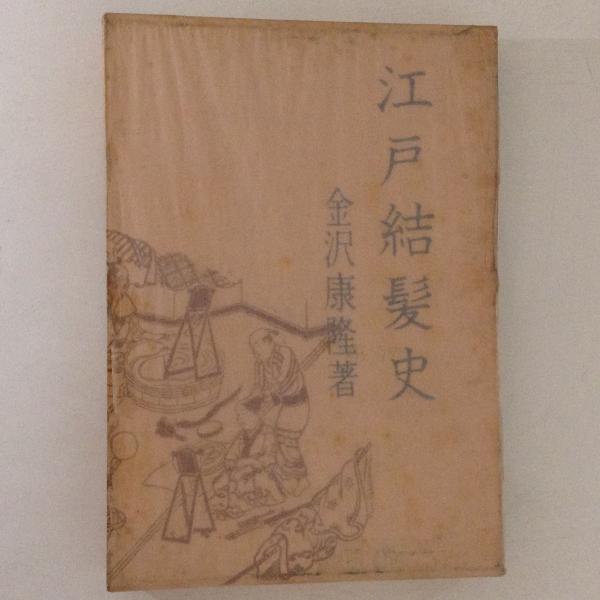 江戸結髪史
金沢康隆著